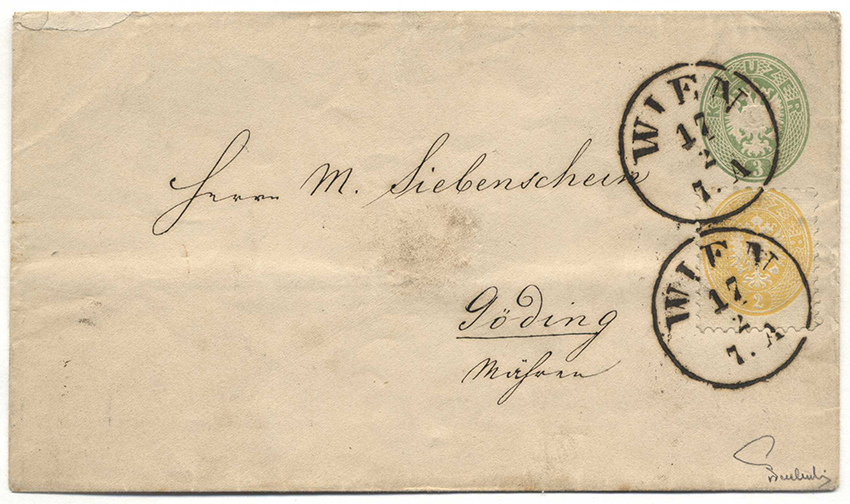 KREUZER
3
WIEN
17
2
7. A
Herrn M. Siebenschein
2
WIEN
17
2
7. A
Göding
Mähren